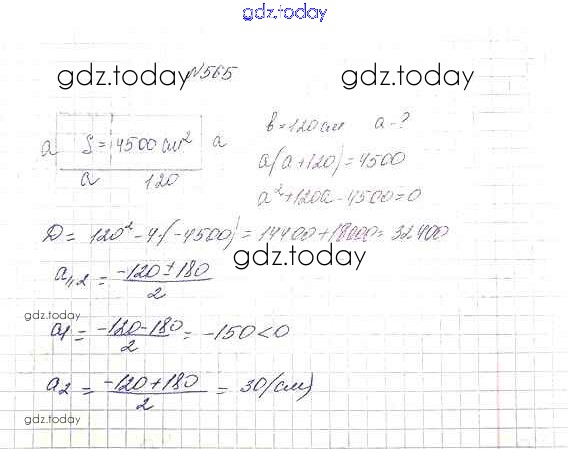 gdz.today
№565
gdz.today gdz.today
a S = 4500 см² a
a 120
в = 120 см a - ?
a(a+120) = 4500
a² + 120a - 4500 = 0
D = 120² - 4·(-4500) = 14400 + 18000 = 32400
gdz.today
a₁,₂ = (-120 ± 180) / 2
gdz.today
a1 = (-120 - 180) / 2 = -150 < 0
gdz.today
a2 = (-120 + 180) / 2 = 30 (см)
gdz.today